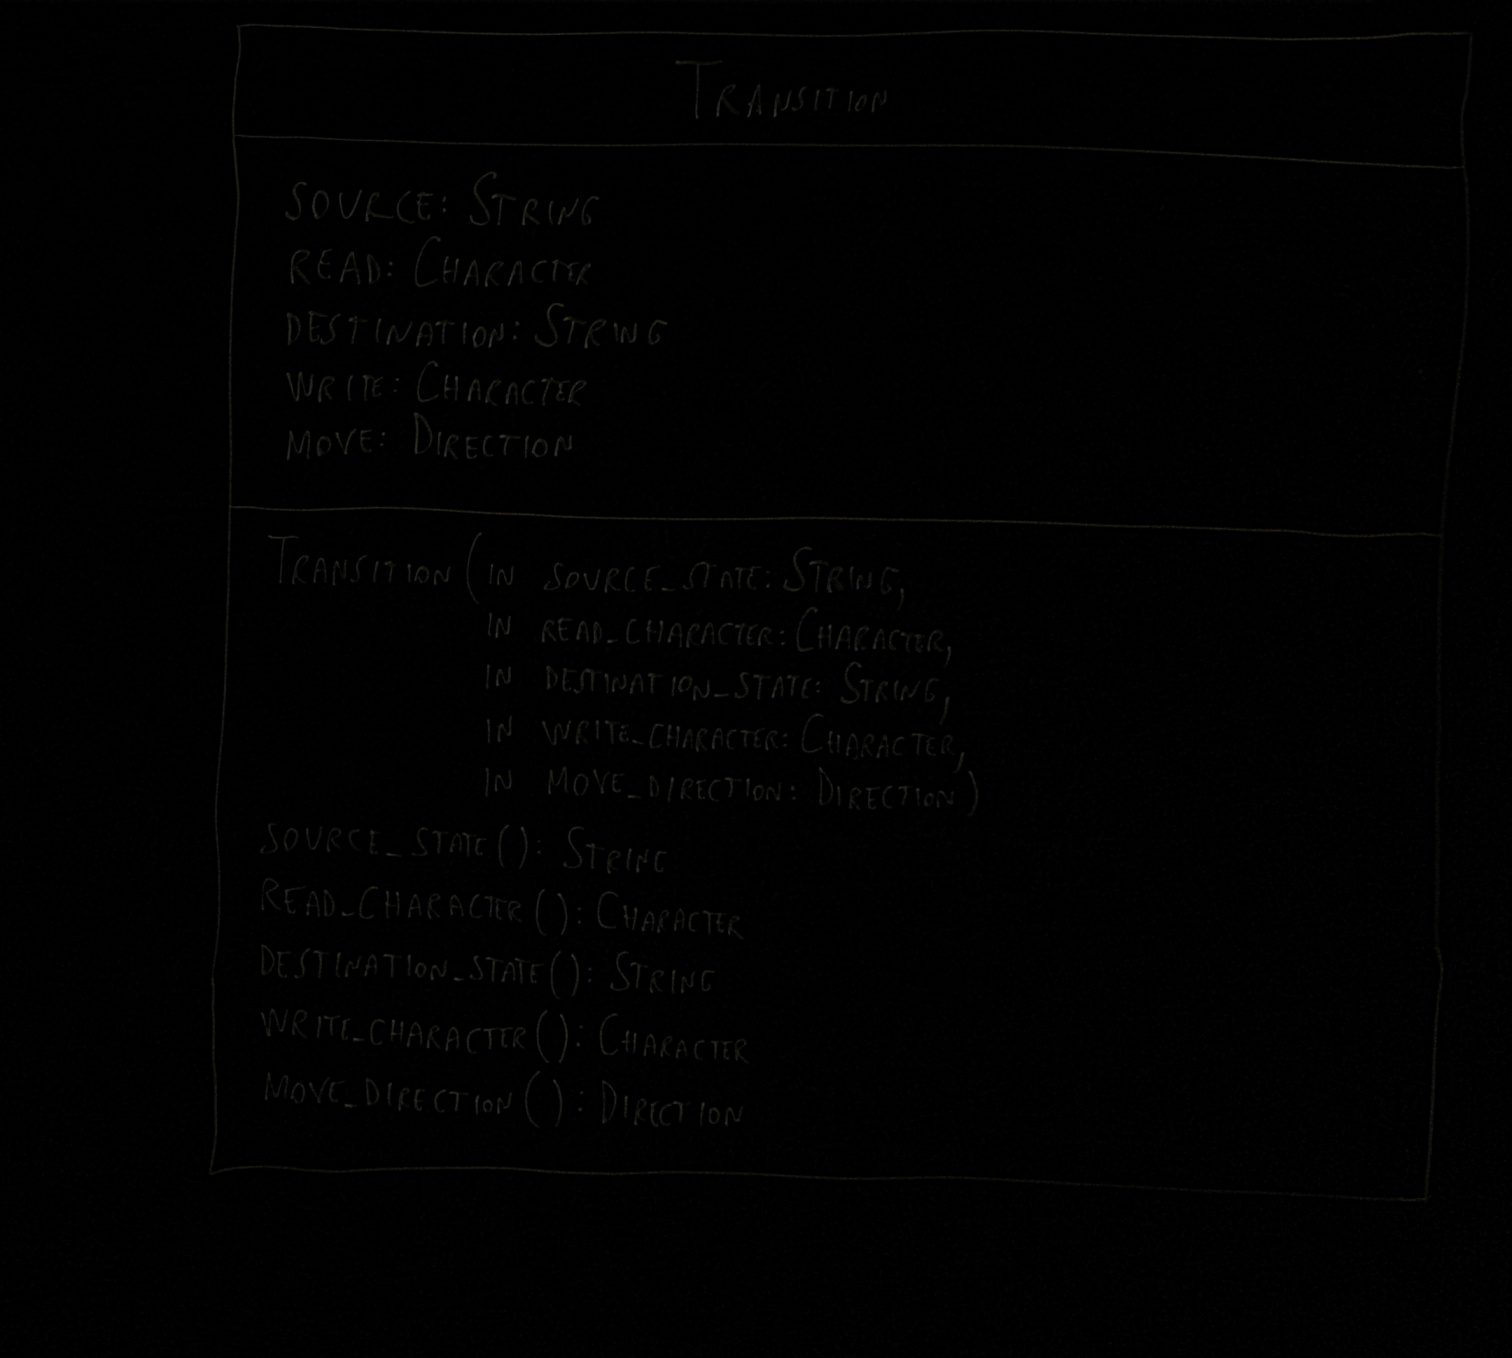 TRANSITION
SOURCE: STRING
READ: CHARACTER
DESTINATION: STRING
WRITE: CHARACTER
MOVE: DIRECTION
TRANSITION(IN SOURCE_STATE: STRING,
IN READ_CHARACTER: CHARACTER,
IN DESTINATION_STATE: STRING,
IN WRITE_CHARACTER: CHARACTER,
IN MOVE_DIRECTION: DIRECTION)
SOURCE_STATE(): STRING
READ_CHARACTER(): CHARACTER
DESTINATION_STATE(): STRING
WRITE_CHARACTER(): CHARACTER
MOVE_DIRECTION(): DIRECTION